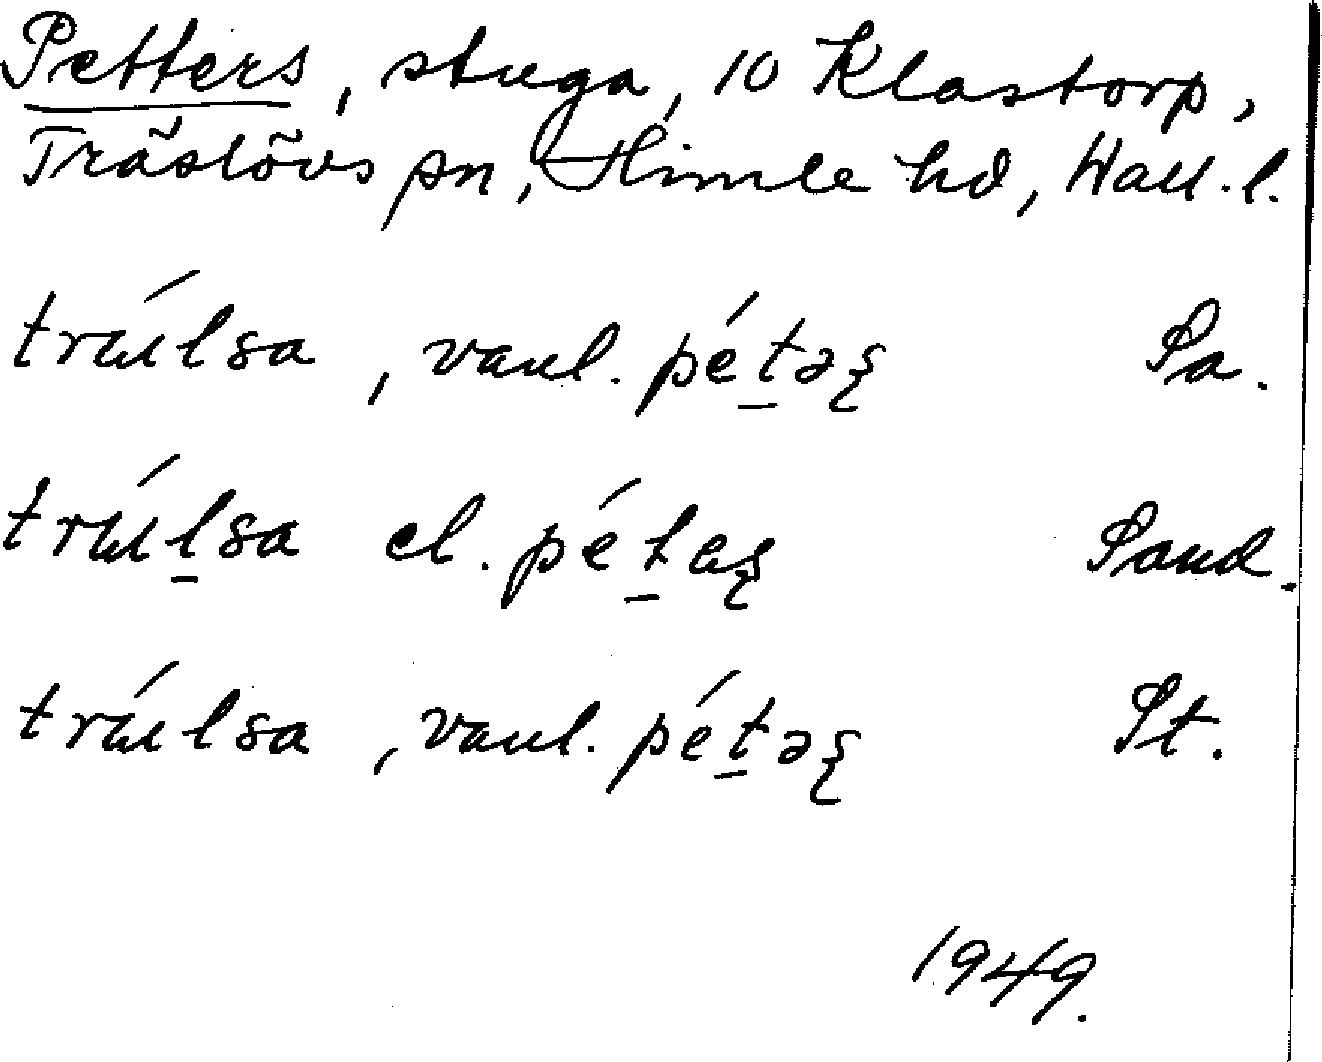 Petters, stuga, 10 Klastorp,
Träslövs sn, Himle hd, Hall. l.
tráulsa, vanl. pét̲əş Pa.
trául̲sa el. pét̲eş Pand.
tráulsa, vanl. pét̲əş Pt.
1949.